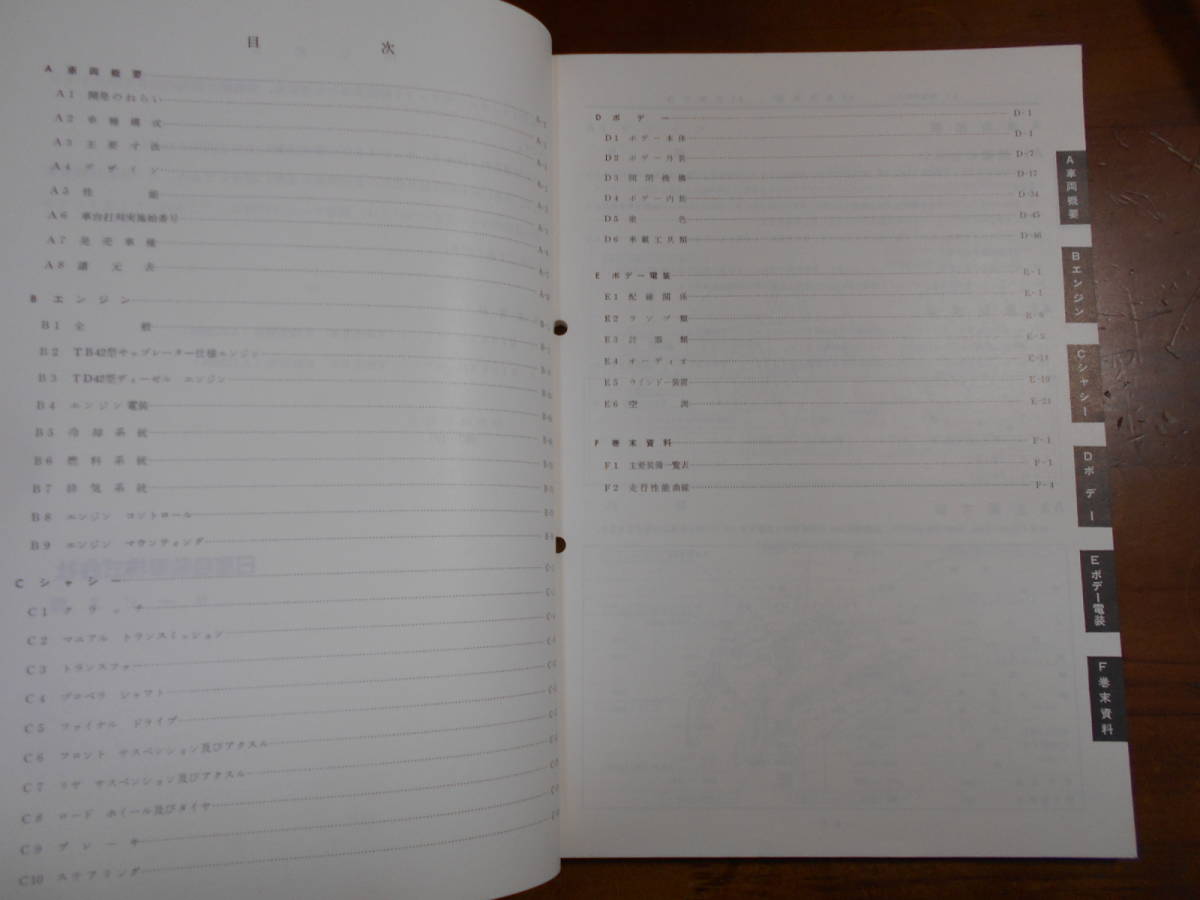 目 次
A 車両概要
A1 開発のねらい
A2 車種構成
A3 主要寸法
A4 デザイン
A5 性能
A6 車台打刻実施始番号
A7 発売車種
A8 諸元表
B エンジン
B1 全般
B2 TB42型キャブレーター仕様エンジン
B3 TD42型ディーゼル エンジン
B4 エンジン電装
B5 冷却系統
B6 燃料系統
B7 排気系統
B8 エンジン コントロール
B9 エンジン マウンティング
C シャシー
C1 クラッチ
C2 マニアル トランスミッション
C3 トランスファー
C4 プロペラ シャフト
C5 ファイナル ドライブ
C6 フロント サスペンション及びアクスル
C7 リヤ サスペンション及びアクスル
C8 ロード ホイール及びタイヤ
C9 ブレーキ
C10 ステアリング
D ボデー D-1
D1 ボデー本体 D-1
D2 ボデー外装 D-7
D3 開閉機構 D-17
D4 ボデー内装 D-24
D5 塗色 D-45
D6 車載工具類 D-46
E ボデー電装 E-1
E1 配線関係 E-1
E2 ランプ類
E3 計器類
E4 オーディオ
E5 ウインドー装置 E-19
E6 空調 E-21
F 巻末資料 F-1
F1 主要装備一覧表 F-1
F2 走行性能曲線 F-4
A 車両概要
B エンジン
C シャシー
D ボデー
E ボデー電装
F 巻末資料